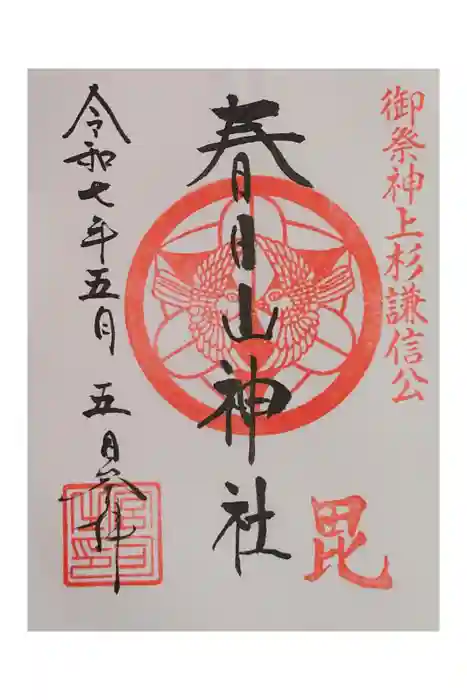 御祭神上杉謙信公
毘
春日山神社
令和七年五月五日参拝